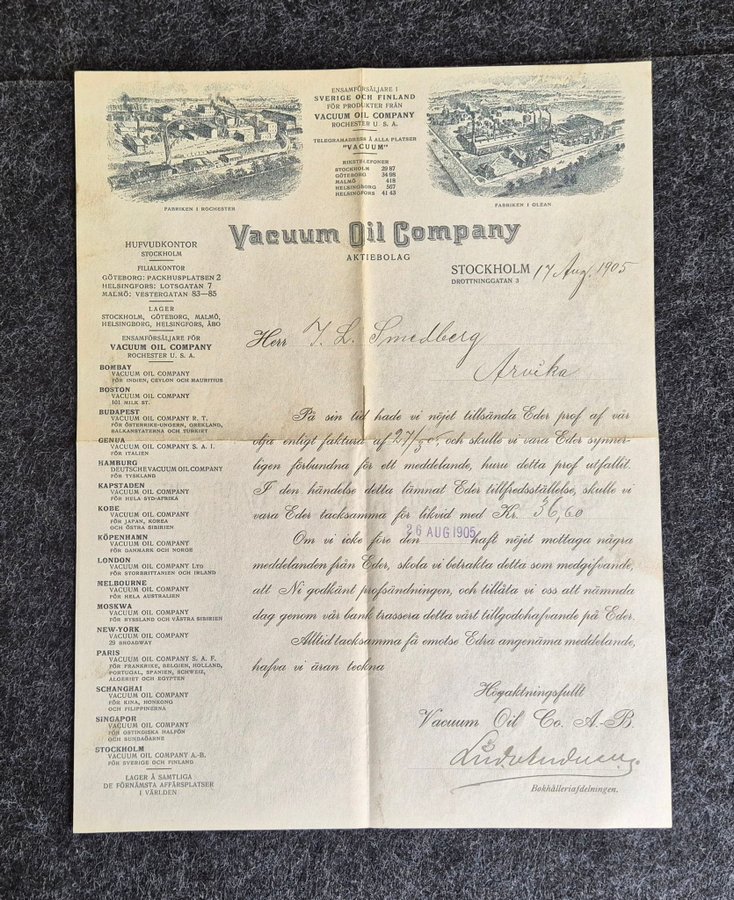 ENSAMFÖRSÄLJARE I
SVERIGE OCH FINLAND
FÖR PRODUKTER FRÅN
VACUUM OIL COMPANY
ROCHESTER U. S. A.
TELEGRAMADRESS Å ALLA PLATSER
"VACUUM"
RIKSTELEFONER
STOCKHOLM 29 87
GÖTEBORG 34 98
MALMÖ 418
HELSINGBORG 567
HELSINGFORS 41 43
FABRIKEN I ROCHESTER
FABRIKEN I OLEAN
Vacuum Oil Company
AKTIEBOLAG
STOCKHOLM 17 Aug. 1905
DROTTNINGGATAN 3
HUFVUDKONTOR
STOCKHOLM
FILIALKONTOR
GÖTEBORG: PACKHUSPLATSEN 2
HELSINGFORS: LOTSGATAN 7
MALMÖ: VESTERGATAN 83—85
LAGER
STOCKHOLM, GÖTEBORG, MALMÖ,
HELSINGBORG, HELSINGFORS, ÅBO
ENSAMFÖRSÄLJARE FÖR
VACUUM OIL COMPANY
ROCHESTER U. S. A.
BOMBAY
VACUUM OIL COMPANY
FÖR INDIEN, CEYLON OCH MAURITIUS
BOSTON
VACUUM OIL COMPANY
161 MILK ST.
BUDAPEST
VACUUM OIL COMPANY R. T.
FÖR ÖSTERRIKE-UNGERN, GREKLAND,
BALKANSTATERNA OCH TURKIET
GENUA
VACUUM OIL COMPANY S. A. I.
FÖR ITALIEN
HAMBURG
DEUTSCHE VACUUM OIL COMPANY
FÖR TYSKLAND
KAPSTADEN
VACUUM OIL COMPANY
FÖR HELA SYD-AFRIKA
KOBE
VACUUM OIL COMPANY
FÖR JAPAN, KOREA
OCH ÖSTRA SIBIRIEN
KÖPENHAMN
VACUUM OIL COMPANY
FÖR DANMARK OCH NORGE
LONDON
VACUUM OIL COMPANY LTD
FÖR STORBRITANNIEN OCH IRLAND
MELBOURNE
VACUUM OIL COMPANY
FÖR HELA AUSTRALIEN
MOSKWA
VACUUM OIL COMPANY
FÖR RYSSLAND OCH VÄSTRA SIBIRIEN
NEW-YORK
VACUUM OIL COMPANY
29 BROADWAY
PARIS
VACUUM OIL COMPANY S. A. F.
FÖR FRANKRIKE, BELGIEN, HOLLAND,
PORTUGAL, SPANIEN, SCHWEIZ,
ALGERIET OCH EGYPTEN
SCHANGHAI
VACUUM OIL COMPANY
FÖR KINA, HONKONG
OCH FILIPPINERNA
SINGAPOR
VACUUM OIL COMPANY
FÖR OSTINDISKA HALFÖN
OCH SUNDAÖARNE
STOCKHOLM
VACUUM OIL COMPANY A.-B.
FÖR SVERIGE OCH FINLAND
LAGER Å SAMTLIGA
DE FÖRNÄMSTA AFFÄRSPLATSER
I VÄRLDEN
Herr J. L. Smedberg
Arvika
På sin tid hade vi nöjet tillsända Eder prof af vår
olja enligt faktura af 27/ 05, och skulle vi vara Eder synner-
ligen förbundna för ett meddelande, huru detta prof utfallit.
I den händelse detta lämnat Eder tillfredsställelse, skulle vi
vara Eder tacksamma för likvid med Kr. 36 60
Om vi icke före den 26 AUG 1905 haft nöjet mottaga några
meddelanden från Eder, skola vi betrakta detta som medgifvande,
att Ni godkänt profsändningen, och tillåta vi oss att nämnda
dag genom vår bank trassera detta vårt tillgodohafvande på Eder.
Alltid tacksamma få emotse Edra angenäma meddelande,
hafva vi äran teckna
Högaktningsfullt
Vacuum Oil Co. A.-B.
Bokhålleriafdelningen.